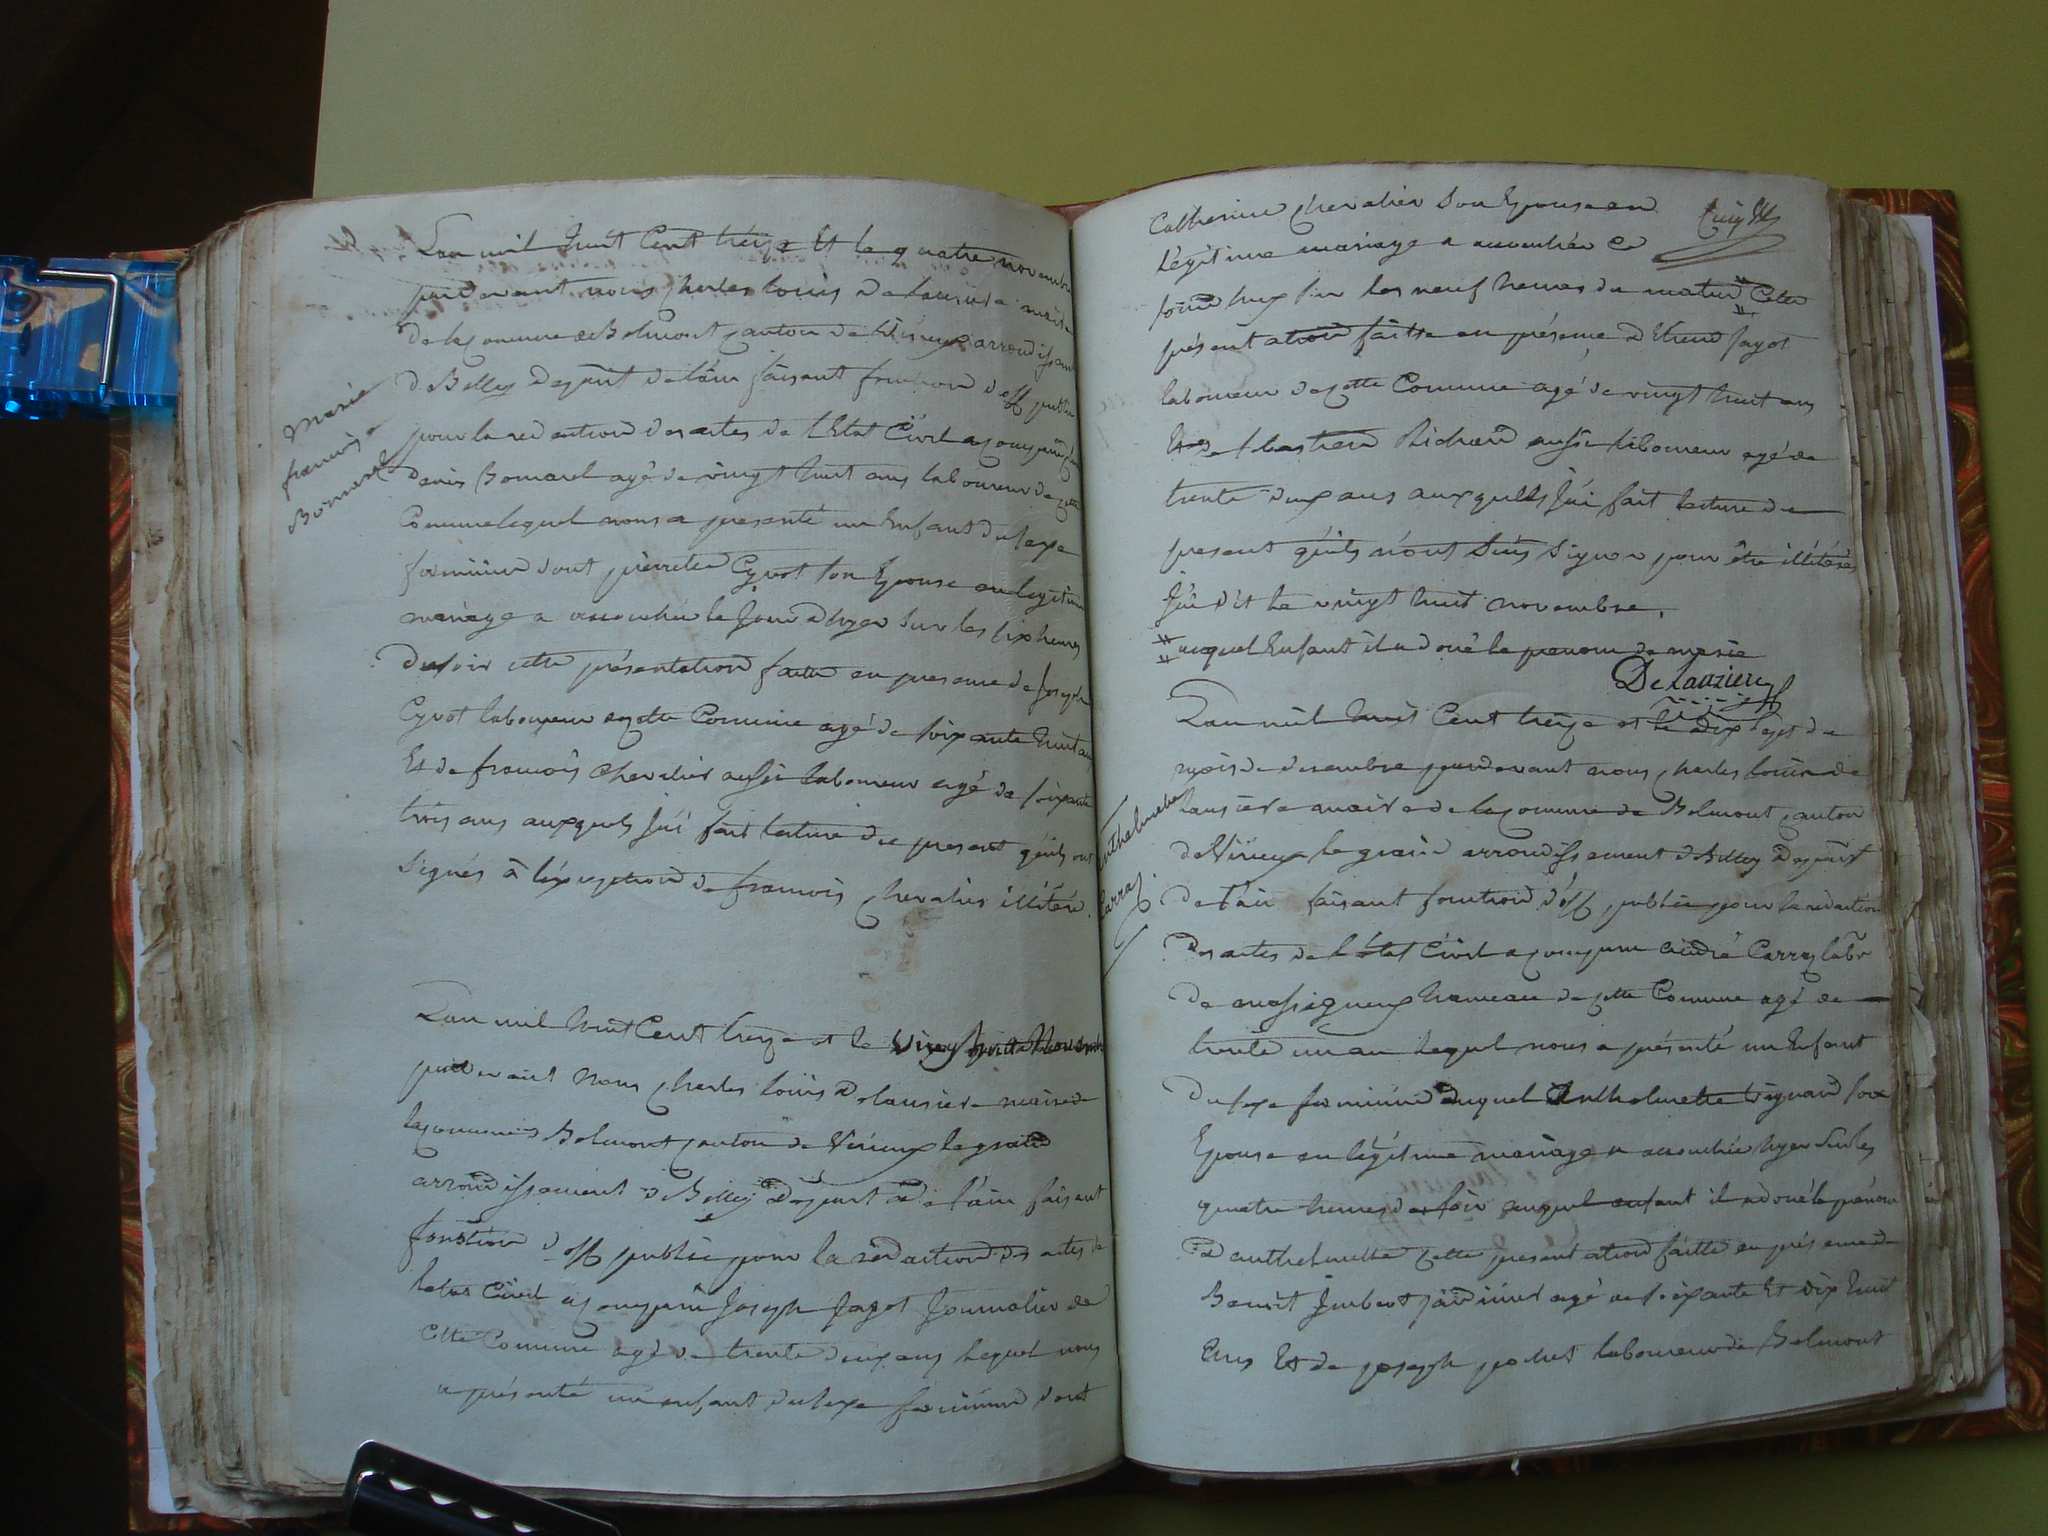 Lan mil huit Cent treize Et le quatre novembre
pardevant nous charles louis Delausiere maire
de la Comune de Belmont canton de Virieux arrondissem
d Belley Depart de lain faisant fonction d off public
pour la redaction des actes de l Etat Civil a comparu
denis Bonnard agé de vingt huit ans laboureur de cette
Comune lequel nous a presenté un Enfant du sexe
feminin dont pierrette Cyvot son Epouse en legitime
mariage a accouchée le Jour d hyer sur les six heures
du soir cette présentation faitte en presence de Joseph
Cyvot laboureur de cette Comune agé de soixante huit ans
Et de francois chevalier aussi laboureur agé de soixante
trois ans auxquels J'ai fait lecture du present qu'ils ont
signés à l'exception de francois chevalier illitéré.
Marie
francoise
Bonnard
Lan mil huit Cent treize et le vingt huitte Novembre
pardevant nous charles louis Delausiere maire de
la comune d Belmont canton de Virieux le grand
arrondissement d Belley Depart de l'ain faisant
fonction d off public pour la redaction des actes de
letat Civil a comparu Joseph fayot Journalier de
cette Comune agé de trente deux ans lequel nous
a présenté un enfant du sexe feminin dont
Catherine chevalier son Epouse en
légitime mariage a accouchée ce
jourd huy sur les neuf heures du matin # Cette
présentation faitte en présence d Etienne fayot
laboureur de cette Comune agé de vingt huit ans
Et de sbastien Richard aussi laboureur agé de
trente deux ans auxquels J'ai fait lecture du
present qu'ils n'ont sus signer pour être illitérés
Ju dit le vingt huit novembre.
# auquel Enfant il a doné le prenom de marie
Delauziere
Lan mil huit Cent treize et le dix sept du
mois de decembre pardevant nous charles louis de
lausiere maire de la comune de Belmont canton
de Virieux le grand arrondissement d Belley Depart
de l'ain faisant fonction d'off public pour la redaction
des actes de l'état Civil a comparu andré Carraz labr
de massigneux hameau de cette Comune agé de
trente un an lequel nous a présenté un Enfant
du sexe feminin duquel Anthelmette son
Epouse en légitime mariage a accouchée hyer sur les
quatre heures du soir auquel enfant il a doné le prénom
d anthelmette cette presentation faitte en présence de
Benoit Jmbert jardinier agé de soixante Et dix huit
Ens Et de joseph pochet laboureur de Belmont
anthelmette
Carraz